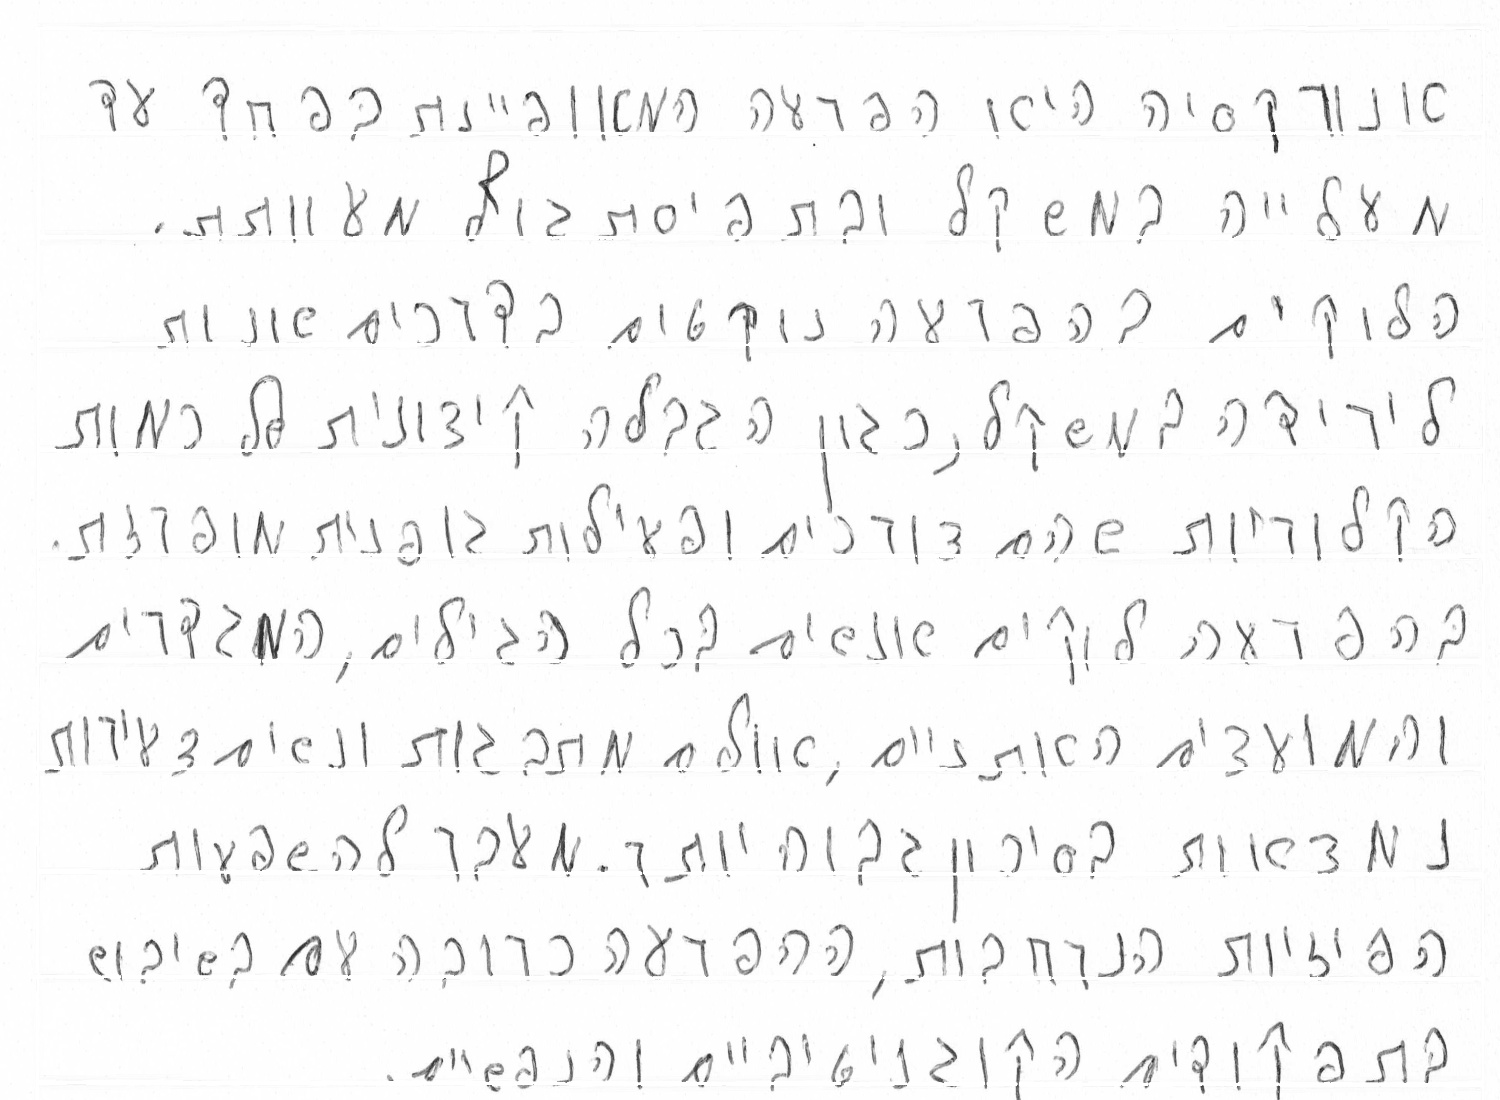 אנורקסיה היא הפרעה המאופיינת בפחד עד
מעלייה במשקל ובתפיסת גוף מעוותת.
הלוקים בהפרעה נוקטים בדרכים שונות
לירידה במשקל, כגון הגבלה קיצונית של כמות
הקלוריות שהם צורכים ופעילות גופנית מופרזת.
בהפרעה לוקים אנשים בכל הגילים, המגדרים
והמועצים האתניים, אולם מתבגות ונשים צעירות
נמצאות בסיכון גבוה יותר. מעבר להשפעות
הפיזיות הנרחבות, ההפרעה כרוכה עם בשיבוש
בתפקודים הקוגניטיביים והנפשיים.